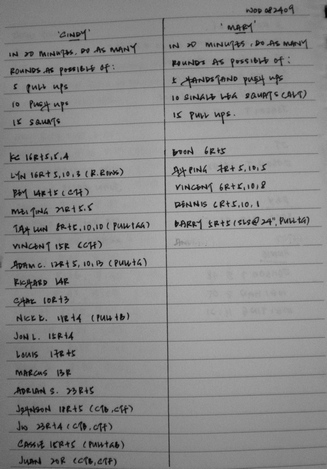 WOD 082409
'CINDY'
IN 20 MINUTES, DO AS MANY
ROUNDS AS POSSIBLE OF:
5 PULL UPS
10 PUSH UPS
15 SQUATS
KC 16R+5,5,4
LYN 16R+5,10,3 (R.ROWS)
14R+5 (CTF)
MEITING 21R+5,5
8R+5,10,10
VINCENT 15R (CTF)
ADAM C. 12R+5,10,13 (PULL+G)
RICHARD 14R
10R+3
NICK K. 11R+4 (PULL+B)
JON L. 15R+4
LOUIS 17R+5
MARCUS 13R
ADRIAN S. 23R+5
JOHNSON 18R+5 (CTB, CTF)
JIO 23R+4 (CTB, CTF)
CASSIE 15R+5
JUAN 20R (CTB, CTF)
'MARY'
IN 20 MINUTES, DO AS MANY
ROUNDS AS POSSIBLE OF:
5 HANDSTAND PUSH UPS
10 SINGLE LEG SQUATS (ALT)
15 PULL UPS.
6R+5
7R+5,10,5
VINCENT 6R+5,10,8
DENNIS 6R+5,10,1
BARRY 5R+5 (SLS@24", PULL+G)